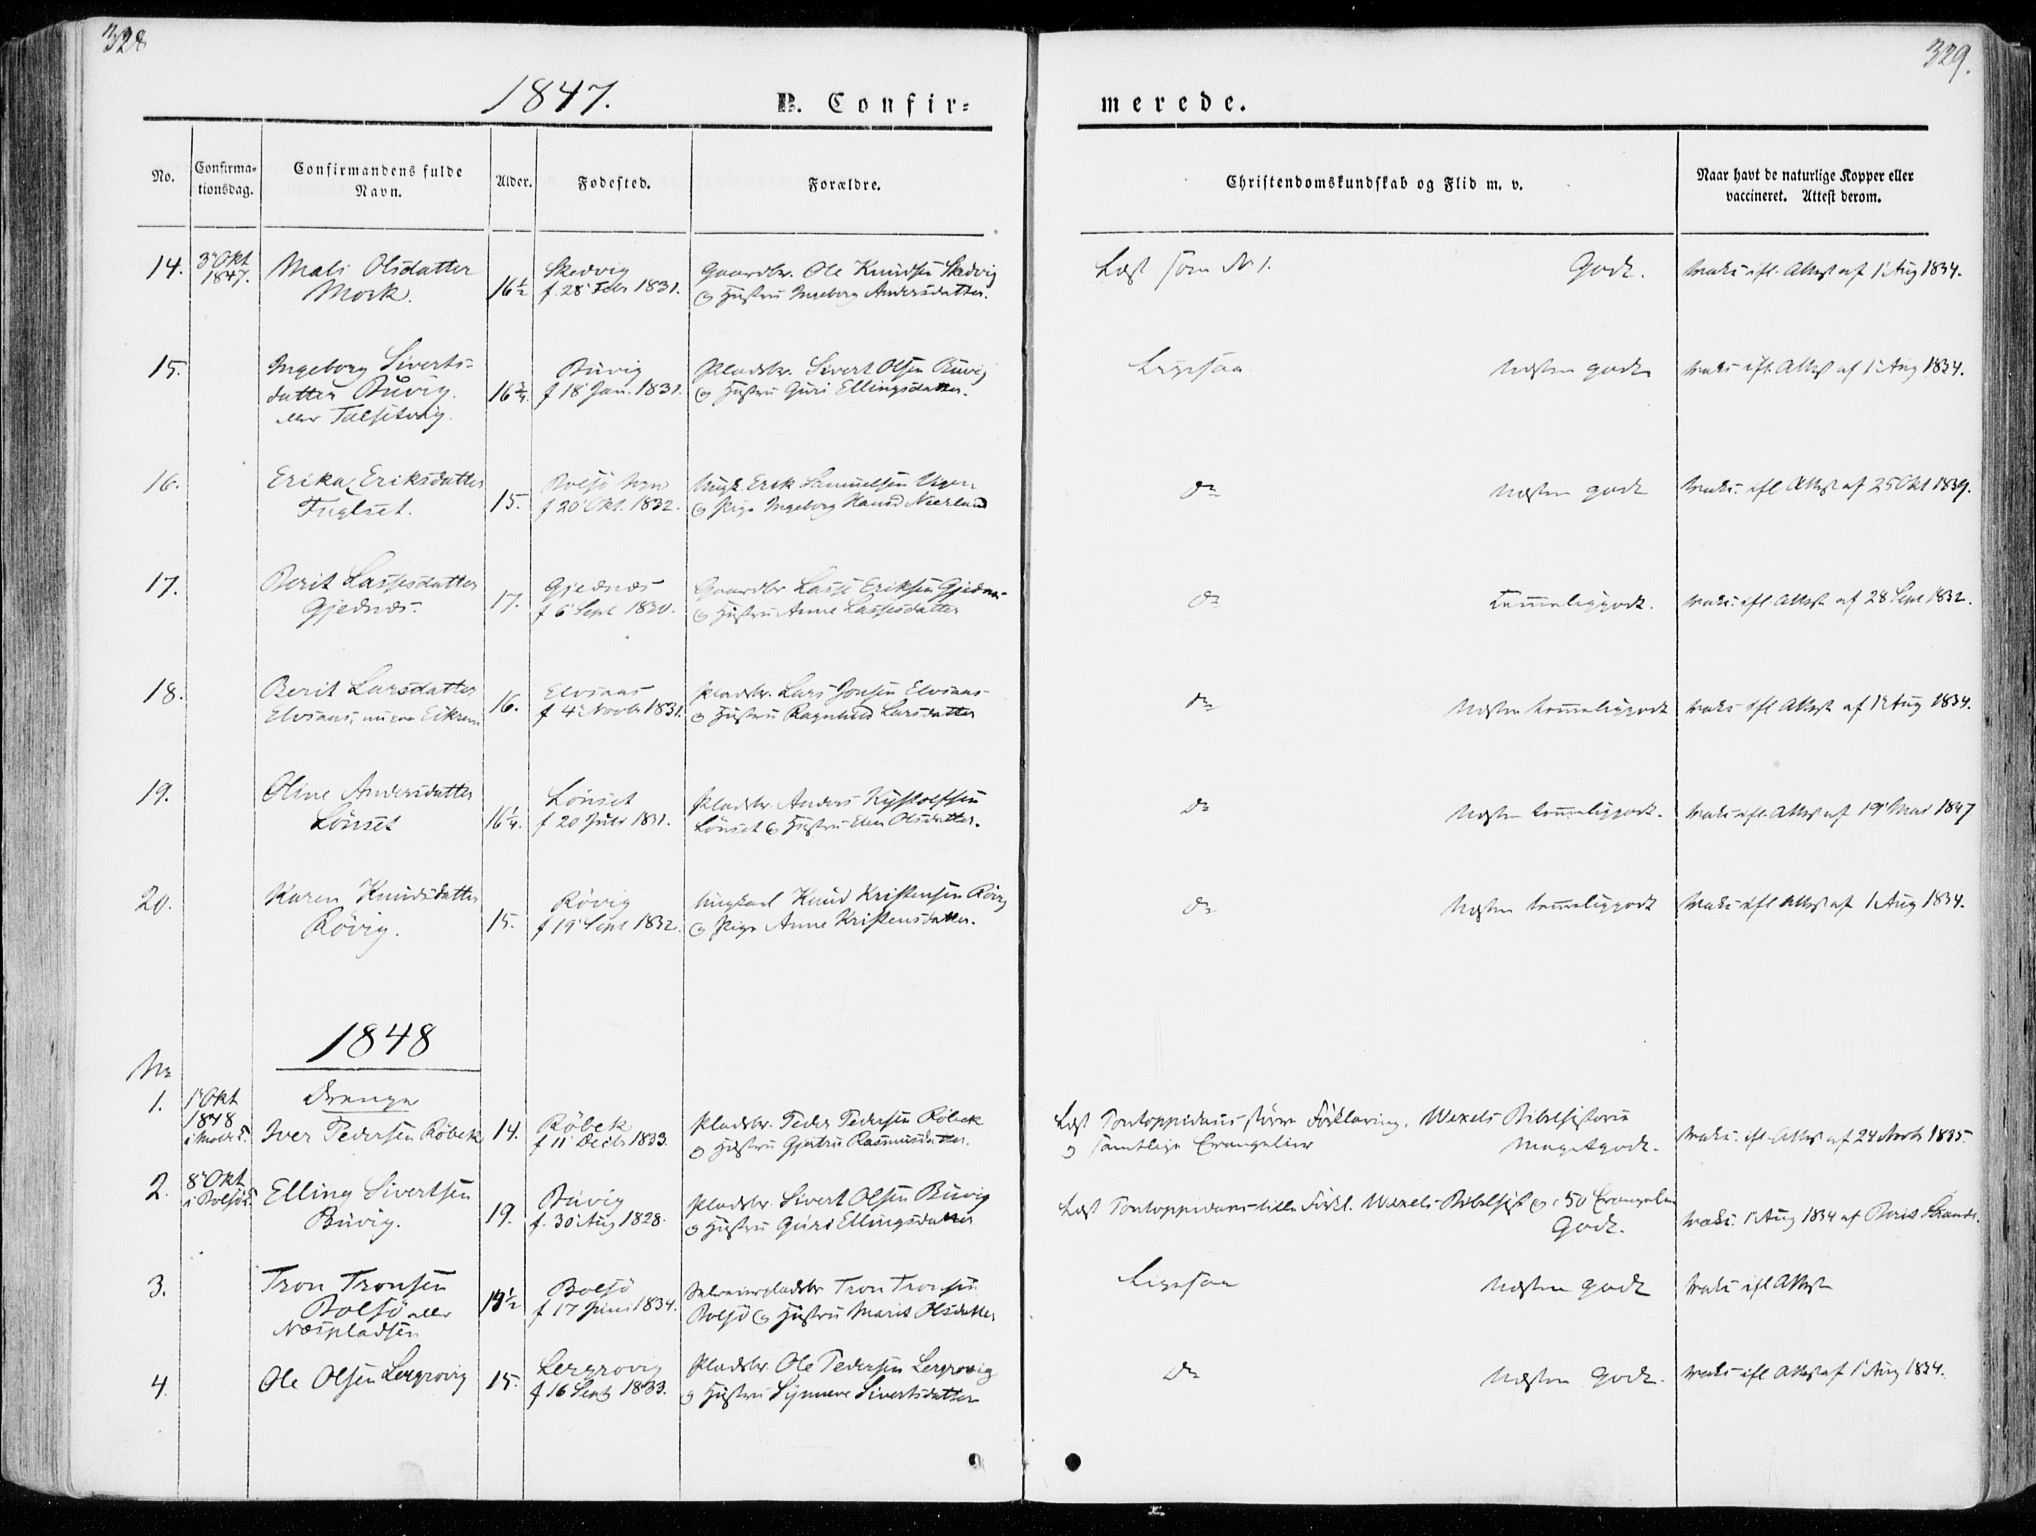 328
329.
1847.
B. Confir=
merede.
No.
Confirma-
tionsdag.
Confirmandens fulde
Navn.
Alder.
Fødested.
Forældre.
Christendomskundskab og Flid m. v.
Naar havt de naturlige Kopper eller
vaccineret. Attest derom.
14.
3' Okt
1847.
Mali Olsdatter
Mork.
16½
Skedvig
f 28' Febr 1831.
Gaardbr. Ole Knudsen Skedvig
og Hustru Ingeborg Andersdatter.
Læst som N 1.
Godt.
Vaks. ifl. Attest af 1' Aug 1834.
15.
Ingeborg Siverts-
datter Buvig
eller
16¾.
Buvig
f 18' Jan. 1831.
Pladsbr. Sivert Olsen Buvig
og Hustru Guri Ellingsdatter.
Ligesaa
Næsten godt
Vaks. ifl. Attest af 1' Aug 1834.
16.
Erika Eriksdatter
Fuglset.
15.
Bolsø Sogn
f 20' Okt. 1832.
Ungk. Erik Samuelsen
og Pige Ingeborg Hansd
do
Næsten godt
Vaks. ifl. Attest af 25 Okt 1839.
17.
Berit Lassesdatter
Gjednæs.
17.
Gjednæs
f 6' Sept 1830.
Gaardbr Lasse Eriksen Gjednæs
og Hustru Anne Lassesdatter
do
Temmeliggodt.
Vaks. ifl. Attest af 28 Sept 1832.
18.
Berit Larsdatter
Elvsaas,
16.
Elvsaas
f 4' Novbr 1831.
Pladsbr. Lars Jonsen Elvsaas
og Hustru Ragnhild Larsdatter
do
Næsten temmeliggodt
Vaks. ifl Attest af 1' Aug 1834.
19.
Oline Andersdatter
Lönset
16¼.
Lönset
f 20 Juli 1831.
Pladsbr. Anders
Lönset og Hustru Olsdatter.
do
Næsten temmeliggodt.
Vaks. ifl. Attest af 19' Mai 1847
20.
Karen Knudsdatter
Rövig.
15.
Rövig
f 19' Sept 1832.
Ungkarl Knud Kristensen Rövig
og Pige Anne Kristensdatter.
do
Næsten temmeliggodt
Vaks. ifl Attest af 1' Aug 1834.
1848
Nr
Drenge
1.
1' Okt
1848
i
Iver Pedersen Röbek
14.
Röbek
f 11' Decbr 1833.
Pladsbr. Peder Pedersen Röbek
og Hustru Gjertru Rasmusdatter.
Læst Pontoppidans større Forklaring. Wexels Bibelhistorie
og samtlige Evangelier
Megetgodt.
Vaks. ifl. Attest af 24 Novb 1835.
2.
8' Okt
i Bolsö K.
Elling Sivertsen
Buvig.
19.
Buvig
f. 30' Aug 1828.
Pladsbr. Sivert Olsen Buvig
og Hustru Guri Ellingsdatter
Læst Pontoppidans lille Forkl. Wexels Bibelhist og 50 Evangelier
Godt.
Vaks. 1' Aug 1834 af
3.
Tron Tronsen
Bolsö eller
Næspladsen
14½
Bolsö
f 17 Juni 1834.
Tron Tronsen
Bolsö og Hustru Marit Olsdatter
Ligesaa
Næsten godt
Vaks. ifl Attest
4.
Ole Olsen Lergrovig
15.
Lergrovig
f 16 Sept 1833.
Pladsbr. Ole Pedersen Lergrovig
og Hustru Synneve Sivertsdatter
do
Næsten godt.
Vaks. ifl Attest af 1' Aug 1834.